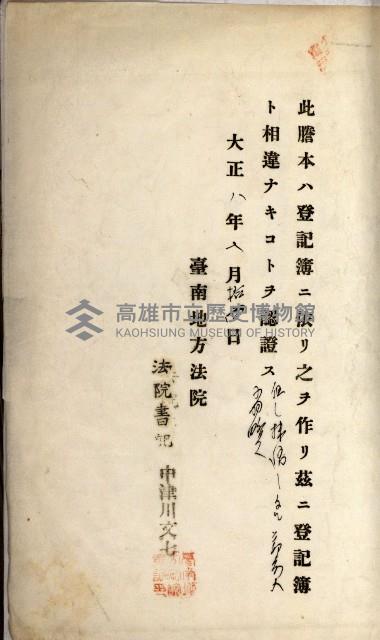 此謄本ハ登記簿ニ依リ之ヲ作リ茲ニ登記簿
ト相違ナキコトヲ認證ス
大正八年八月拾 日
臺南地方法院
法院書記 中津川文七
高雄市立歷史博物館
KAOHSIUNG MUSEUM OF HISTORY